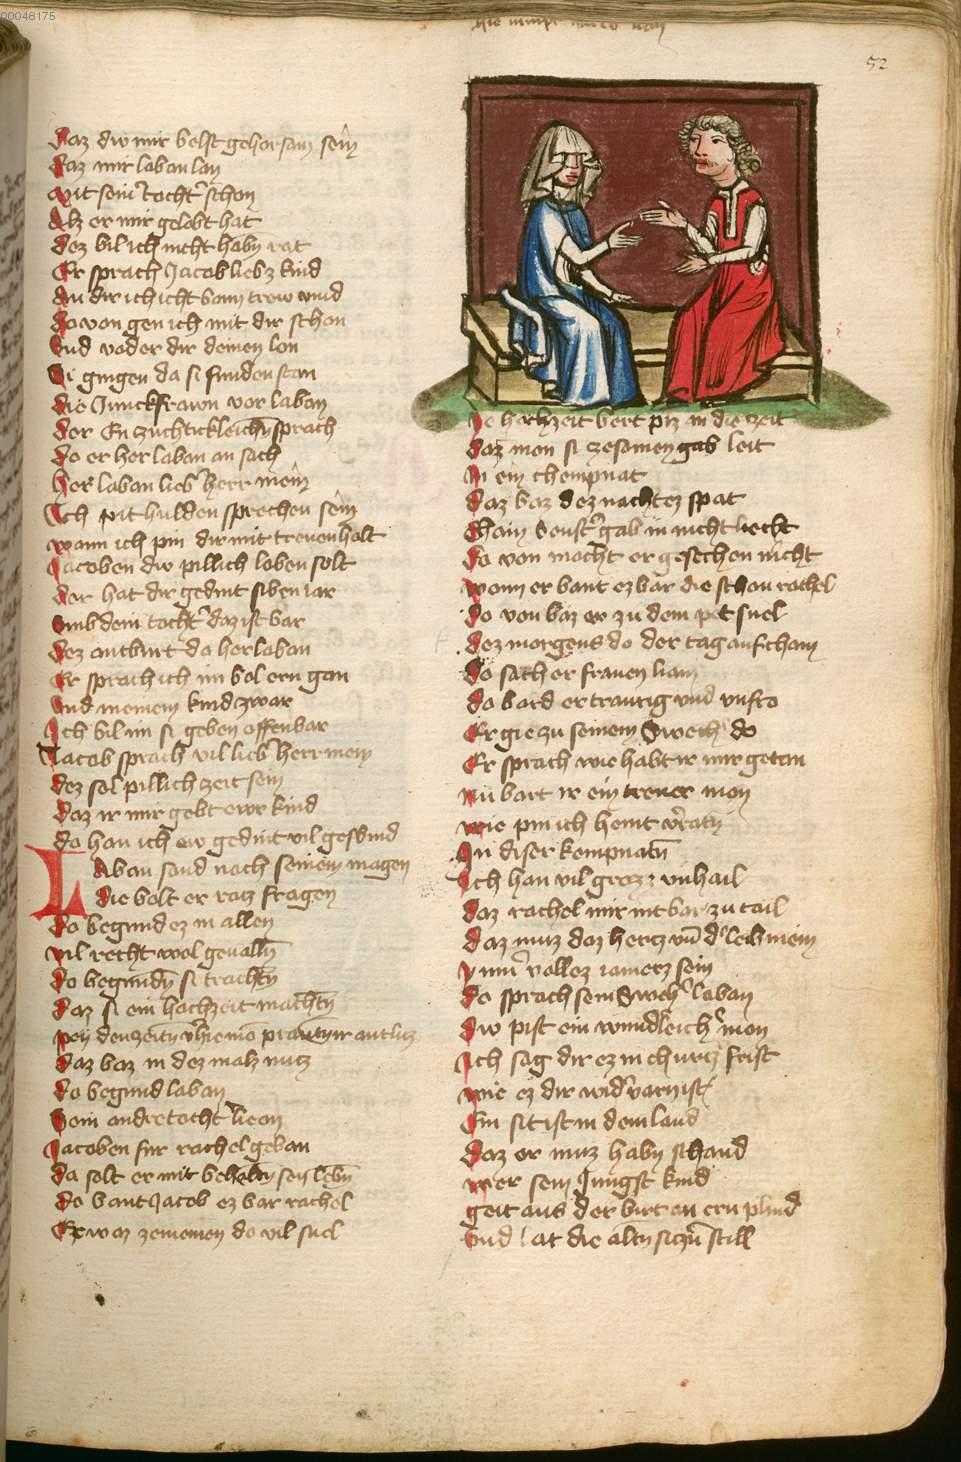 00048175
52
daz dw mir belst gehorsam sein
daz mir laban lan
mit seinr tochtr schon
Alz er mir gelobt hat
dez bil ich nicht habn rat
Er sprach Jacob liebz kind
An dir ich icht bann trew vind
do von gen ich mit dir schon
Vnd voder dir deinen lon
Si gingen da si funden stan
die Junckfrawn vor laban
der En zuchtickleichn sprach
do er her laban an sach
her laban liebr herr mein
Ich mit hulden sprechen sein
wann ich pin dir mit trewen holt
Jacoben dw pillich loben solt
der hat dir gedint siben iar
Vmb dein tochtr daz ist bar
dez antburt da her laban
Er sprach ich im bol ern gan
Vnd meinem kind zwar
Ich bil im si geben offenbar
Jacob sprach vil liebr herr mein
dez sol pillich zeit sein
daz ir mir gebt ewr kind
do han ich ew gedint vil geswind
Laban sand nach seinem magen
die bolt er ratz fragen
do begund ez in allen
vil recht wol geualln
do begundn si trachtn
daz si ein hochzeit machtn
pey den zeitn
daz baz in dez malz nutz
do begund laban
sein andre tochtr liean
Jacoben fur rachel geban
da solt er mit behaltn seis lebn
do bant Jacob ez bar rachel
Er waz zenemen do vil snel
die hochzeit bert piz in die zeit
daz mon si zesamen gab leit
In ein chempnat
daz baz dez nachtez spat
Chain venstr gab in nicht liecht
do von mocht er gesechen nicht
wann er bant ez bar die schon rachel
do von baz er zu dem pet snel
dez morgens do der tag auf cham
do sach er frauen liam
do bard er traurig vnd vnfro
Er gie zu seinem Swechr do
Er sprach wie habt ir mir getan
Nu bart ir ein trewer mon
wie pin ich heint vrratn
In diser kempnatn
Ich han vil grozz vnhail
daz rachel mir nit bar zu tail
daz muz daz hertz vnd dr leib mein
ymmr vollez iamerz sein
do sprach sein Swehr laban
dw pist ein wundrleichr mon
Ich sag dir ez in churtzr frist
wie ez dir widr varn ist
Ein sit ist in dem land
daz er muz habn schand
wer sein Jungst kind
geit aus der burt an ern plind
Vnd lat die altn sitzn still